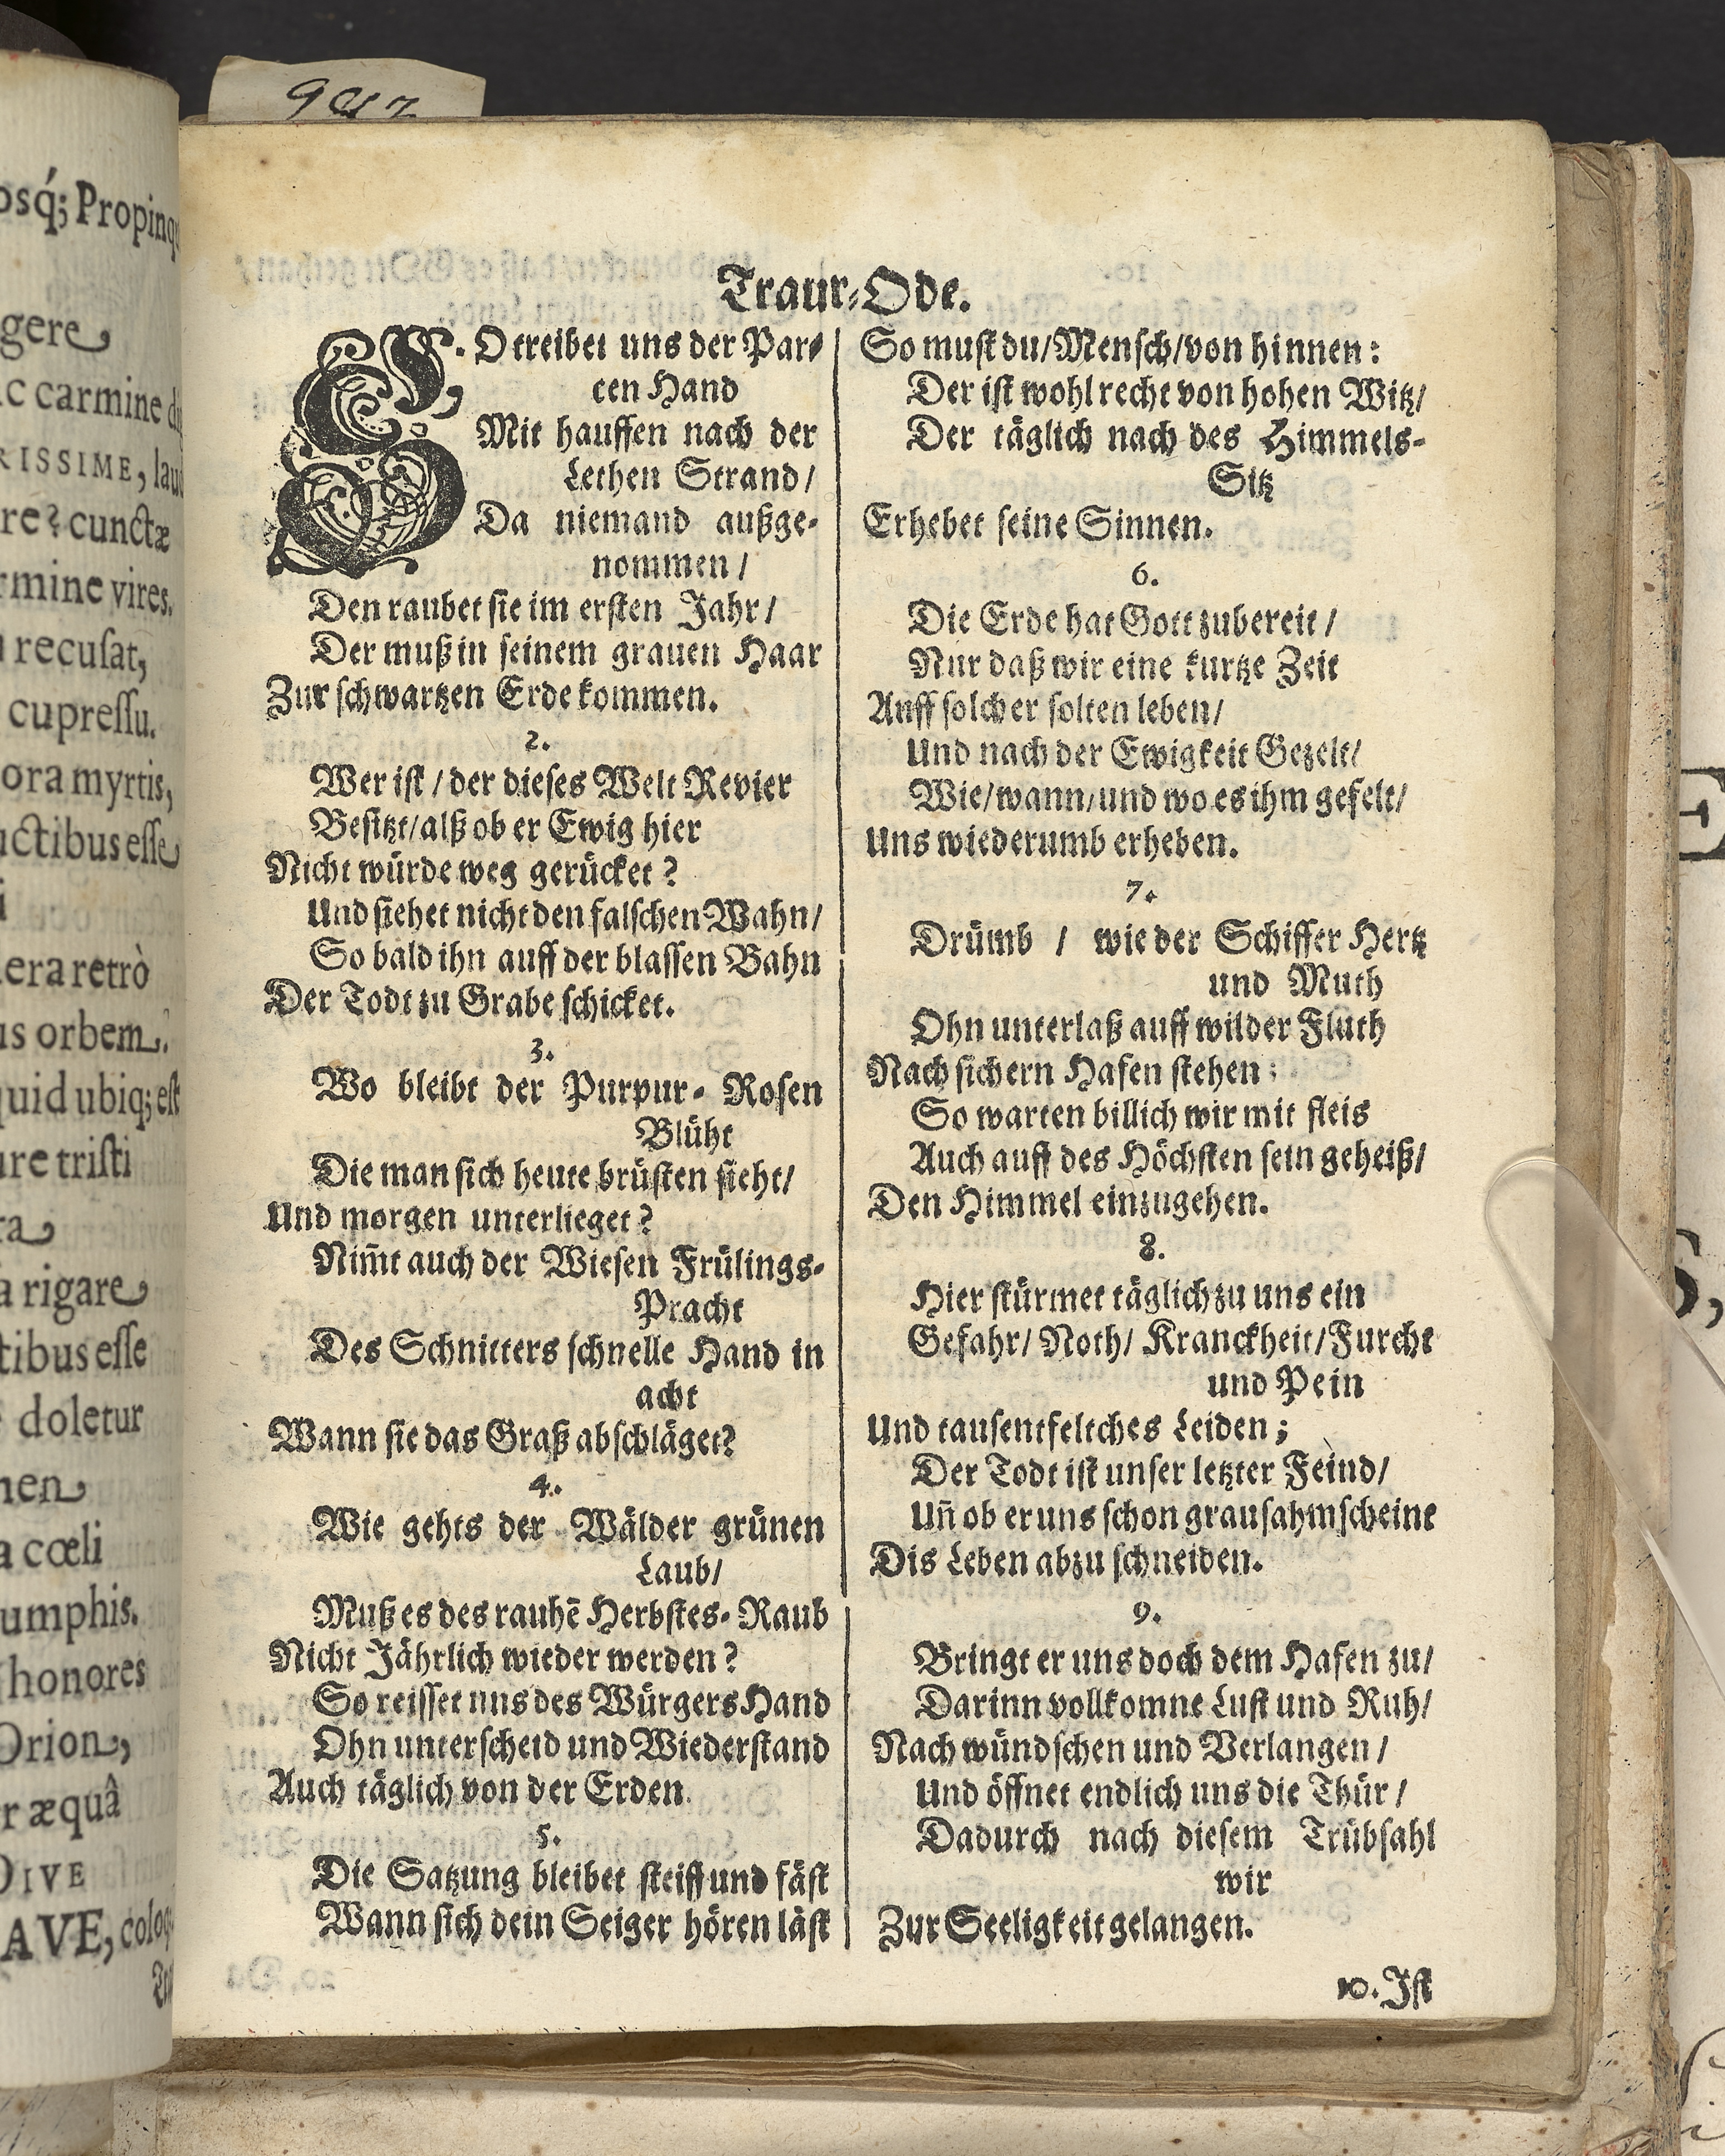 9917
osq́; Propinq
gere
ic carmine
RISSIME, lau
re? cunctæ
rmine vires.
recuſat,
cupreſſu.
ora myrtis,
uctibus eſſe
i
era retrò
us orbem.
quid ubiq; eſt
ure triſti
ra
à rigare
tibus eſſe
doletur
nen
a cœli
umphis.
honores
Orion,
r æquâ
DIVE
AVE, colo
Traur-Ode.
SO treibet uns der Par-
cen Hand
Mit hauffen nach der
Lethen Strand/
Da niemand außge-
nommen/
Den raubet ſie im erſten Jahr/
Der muß in ſeinem grauen Haar
Zur ſchwartzen Erde kommen.
2.
Wer iſt/ der dieſes Welt Revier
Beſitzt/ alß ob er Ewig hier
Nicht würde weg gerücket?
Und ſiehet nicht den falſchen Wahn/
So bald ihn auff der blaſſen Bahn
Der Todt zu Grabe ſchicket.
3.
Wo bleibt der Purpur- Roſen
Blüht
Die man ſich heute brüſten ſieht/
Und morgen unterlieget?
Nim̄t auch der Wieſen Frülings-
Pracht
Des Schnitters ſchnelle Hand in
acht
Wann ſie das Graß abſchläget?
4.
Wie gehts der Wälder grünen
Laub/
Muß es des rauhē Herbſtes- Raub
Nicht Jährlich wieder werden?
So reiſſet nns des Würgers Hand
Ohn unterſcheid und Wiederſtand
Auch täglich von der Erden.
5.
Die Satzung bleibet ſteiff und fäſt
Wann ſich dein Seiger hören läſt
So muſt du/ Menſch/ von hinnen:
Der iſt wohl recht von hohen Witz/
Der täglich nach des Himmels-
Sitz
Erhebet ſeine Sinnen.
6.
Die Erde hat Gott zubereit/
Nur daß wir eine kurtze Zeit
Auff ſolcher ſolten leben/
Und nach der Ewigkeit Gezelt/
Wie/ wann/ und wo es ihm gefelt/
Uns wiederumb erheben.
7.
Drümb / wie der Schiffer Hertz
und Muth
Ohn unterlaß auff wilder Fluth
Nach ſichern Hafen ſtehen;
So warten billich wir mit fleis
Auch auff des Höchſten ſein geheiß/
Den Himmel einzugehen.
8.
Hier ſtürmet täglich zu uns ein
Gefahr/ Noth/ Kranckheit/ Furcht
und Pein
Und tauſentfeltches Leiden;
Der Todt iſt unſer letzter Feind/
Uñ ob er uns ſchon grauſahm ſcheint
Dis Leben abzuſchneiden.
9.
Bringt er uns doch dem Hafen zu/
Darinn vollkomne Luſt und Ruh/
Nach wündſchen und Verlangen/
Und öffnet endlich uns die Thür/
Dadurch nach dieſem Trübſahl
wir
Zur Seeligkeit gelangen.
10. Iſt